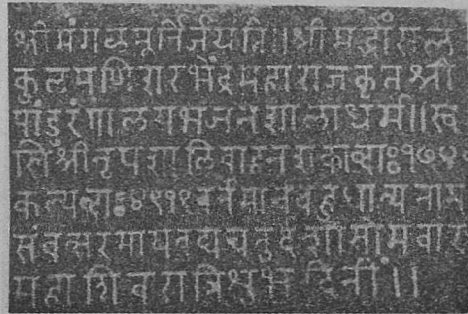 श्री मंगळमूर्तिर्जयति ॥ श्री मद्भोंसल
कुलमणि शरभेंद्र महाराज कृत श्री
पांडुरंगालय भजनशाला धर्म ॥ स्व
स्ति श्री नृप शालिवाहन शकाब्दाः १७४
कल्यब्दाः ४९१९ वर्तमान बहुधान्य नाम
संवत्सर माघ चतुर्दशी सोमवार
महाशिवरात्रि शुभ दिनीं ॥